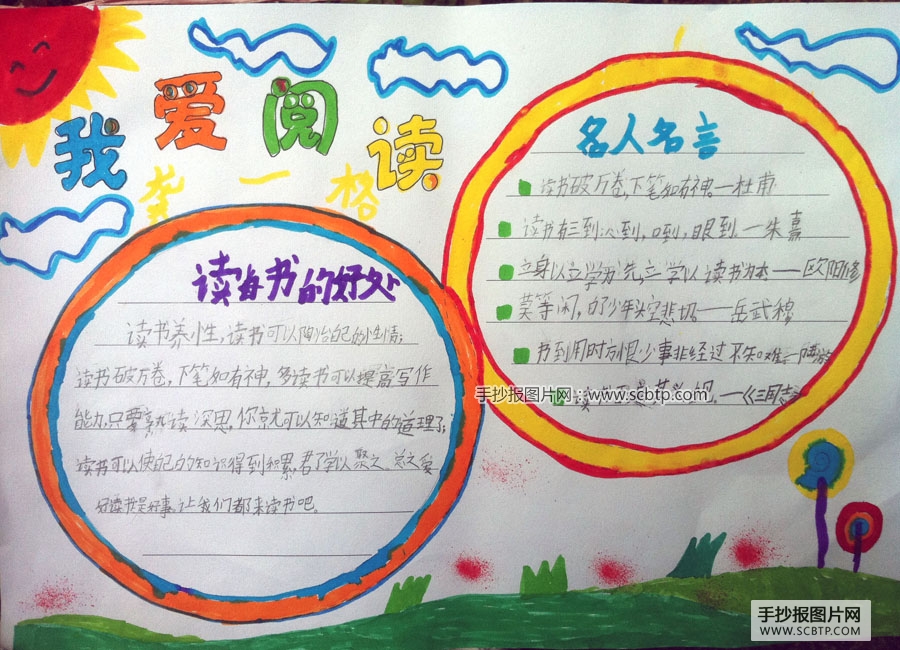 我爱阅读
龚一格
读书的好处
读书养性,读书可以陶冶自己的性情;
读书破万卷,下笔如有神,多读书可以提高写作
能力,只要熟读深思,你就可以知道其中的道理了;
读书可以使自己的知识得到积累,君子学以聚之、总之爱
好读书是好事,让我们都来读书吧。
名人名言
读书破万卷,下笔如有神—杜甫
读书有三到:心到,口到,眼到.—朱熹
立身以立学为先,立学以读书为本——欧阳修
莫等闲,白了少年头空悲切——岳武穆
书到用时方恨少事非经过不知难——陆游
——《三国志》
手抄报图片网:www.scbtp.com
手抄报图片网
WWW.SCBTP.COM